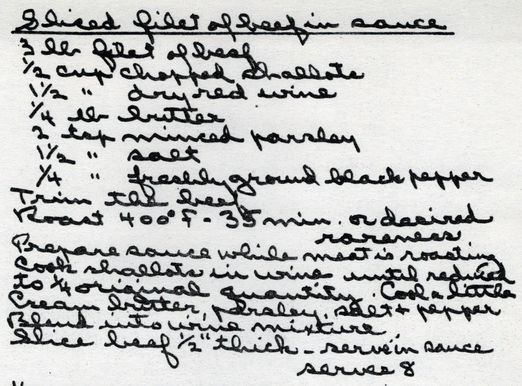 Sliced filet of beef in sauce
3 lb filet of beef
1/2 cup chopped shallots
1 1/2 " dry red wine
1/4 lb butter
2 tsp minced parsley
1 1/2 " salt
1/4 " freshly ground black pepper
Trim the beef
Roast 400° F - 35 min. or desired
rareness
Prepare sauce while meat is roasting
Cook shallots in wine until reduced
to 1/4 original quantity. Cool a little
Cream butter, parsley, salt + pepper
Blend into wine mixture
Slice beef 1/2" thick - serve in sauce
serves 8